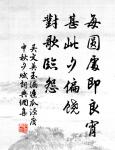 每圆处即良宵
甚此夕偏饶
對歌临怨
吴文英玉漏迟瓜泾度
中秋夕赋词典调集